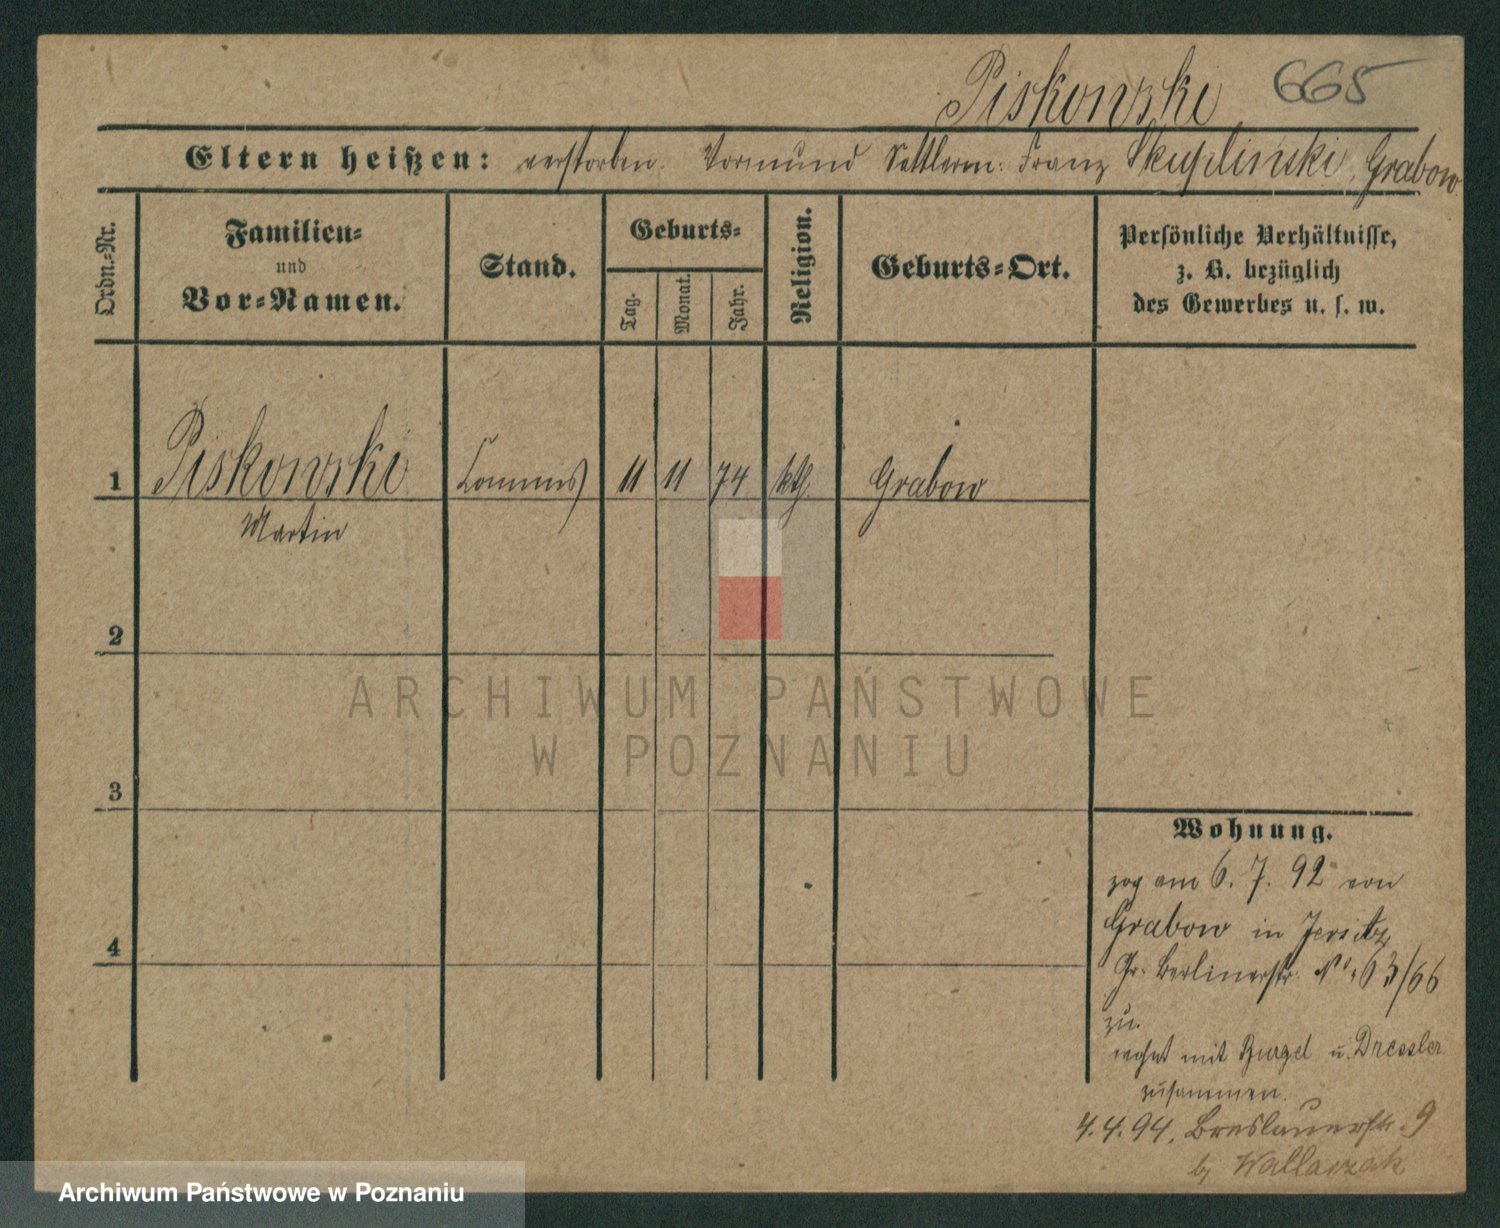 Piskowski 665
Eltern heißen: verstorben. Vormund Sattlerm: Franz Skuplinski, Grabow
Ordn.-Nr.
Familien-
und
Vor-Namen.
Stand.
Geburts-
Tag.
Monat.
Jahr.
Religion.
Geburts-Ort.
Persönliche Verhältnisse,
z. B. bezüglich
des Gewerbes u. s. w.
1 Piskowski Commis 11 11 74 kth. Grabow
Martin
2
3
4
Wohnung.
zog am 6. 7. 92 von
Grabow in Jersitz
Gr. Berlinerstr. No. 63/66
zu.
wohnt mit u. Dressler
zusammen.
4.4.94. Breslauerstr. 9
by Wallaczak
ARCHIWUM PAŃSTWOWE
W POZNANIU
Archiwum Państwowe w Poznaniu